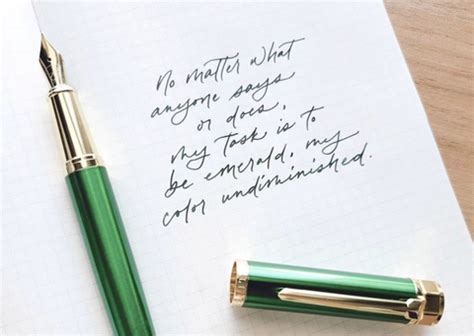 no matter what
anyone says
or does,
my task is to
be emerald, my
color undiminished.